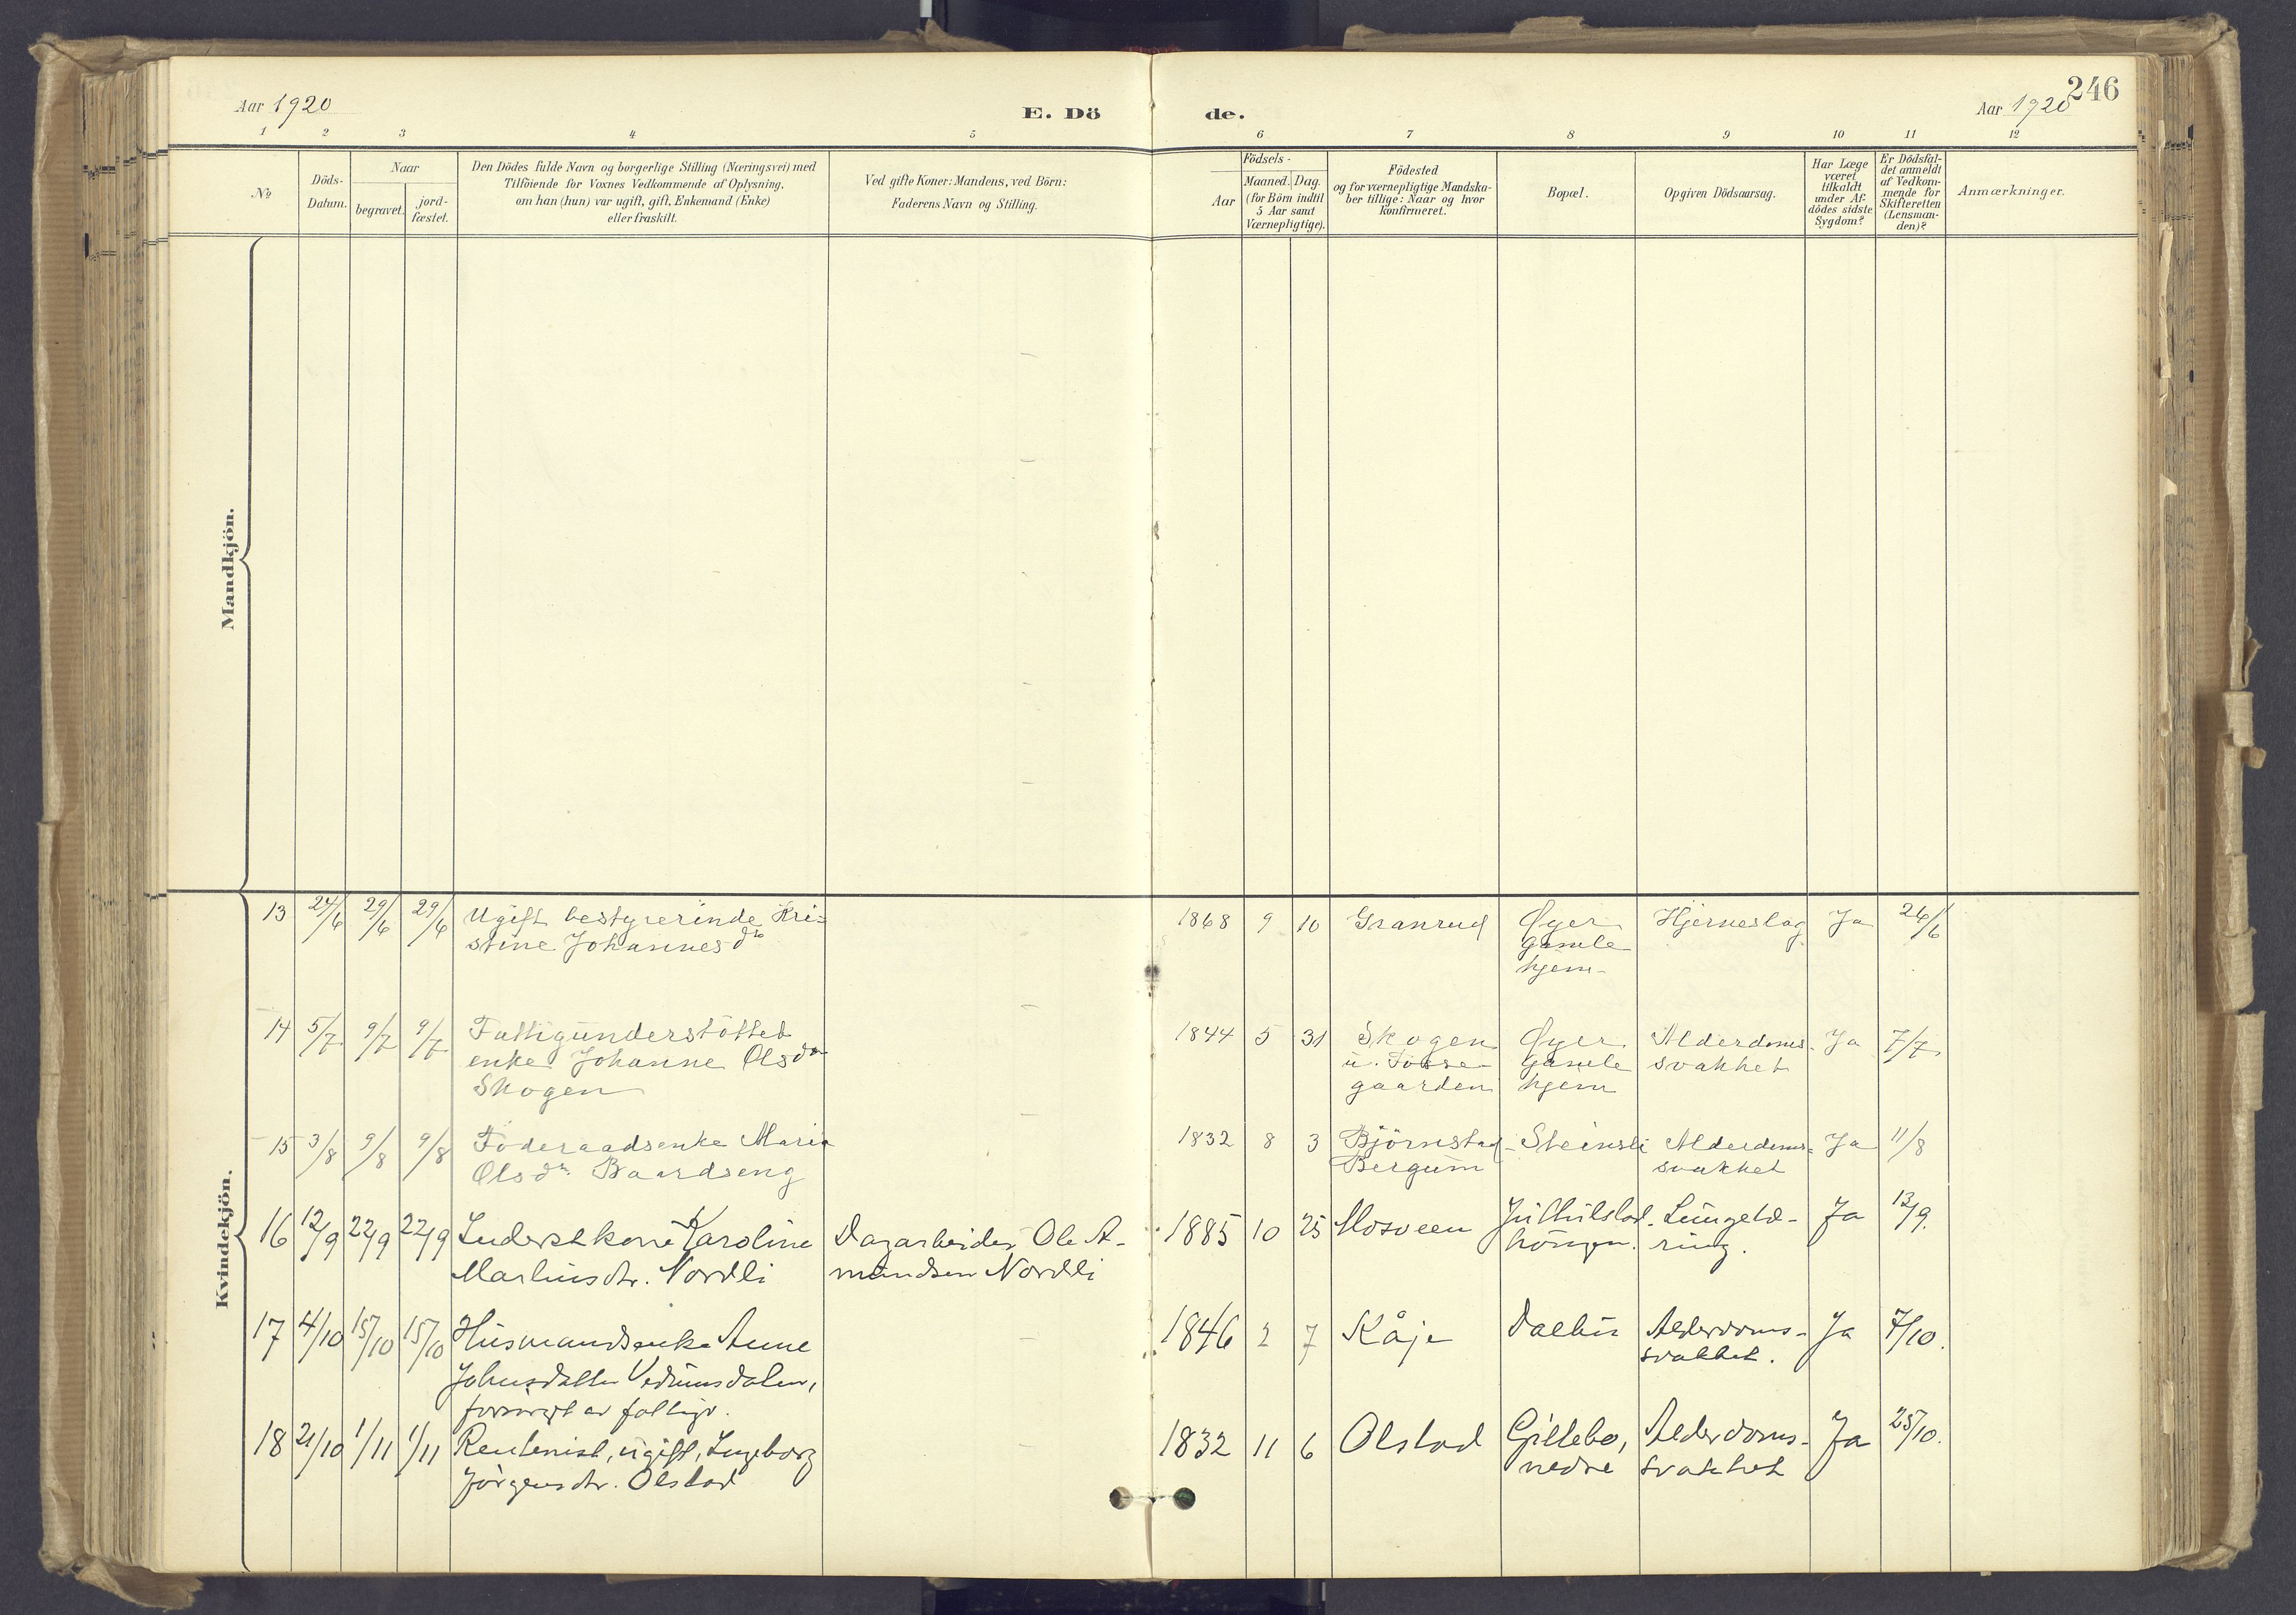 246
Aar 1920
E. Dö
de.
Aar 1920
1 2 3 4 5 6 7 8 9 10 11 12
No
Döds-
Datum.
Naar
begravet.
jord-
fæstet.
Den Dödes fulde Navn og borgerlige Stilling (Næringsvei) med
Tilföiende for Voxnes Vedkommende af Oplysning,
om han (hun) var ugift, gift, Enkemand (Enke)
eller fraskilt.
Ved gifte Koner: Mandens, ved Börn:
Faderens Navn og Stilling.
Födsels-
Aar
Maaned. Dag.
(for Börn indtil
5 Aar samt
Værnepligtige).
Födested
og for værnepligtige Mandska-
ber tillige: Naar og hvor
konfirmeret.
Bopæl.
Opgiven Dödsaarsag.
Har Læge
været
tilkaldt
under Af-
dödes sidste
Sygdom?
Er Dödsfal-
det anmeldt
af Vedkom-
mende for
Skifteretten
(Lensman-
den)?
Anmærkninger.
Mandkjön.
Kvindekjön.
13 24/6 29/6 29/6 Ugift bestyrerinde Kri- 1868 9 10 Granrud Øyer Hjerneslag Ja 26/6
stine Johannesdr gamle
hjem
14 5/7 9/7 9/7 Fattigunderstöttet 1844 5 31 Skogen Øyer Alderdoms- Ja 7/7
enke Johanne Olsdr u. Fosse- gamle svakhet
Skogen gaarden hjem
15 3/8 9/8 9/8 Föderaadsenke Maria 1832 8 3 Björnstad- Steinsli Alderdoms- Ja 11/8
Olsdr. Baardseng Bergum svakhet
16 12/9 22/9 22/9 Inderstkone Karoline Dagarbeider Ole A- 1885 10 25 Mosveen Lungetæ- Ja 13/9.
Marliusdtr. Nordli mundsen Nordli ring.
17 4/10 15/10 15/10 Husmandsenke Anne 1846 2 7 Kåje Dalbu Alderdoms- Ja 7/10.
Johnsdatter Vedumsdalen, svakhet.
forsörget av fattigv.
18 21/10 1/11 1/11 Rentenist, ugift, Ingeborg 1832 11 6 Olstad Gillebo, Alderdoms- Ja 25/10.
Jörgensdtr. Olstad nedre svakhet